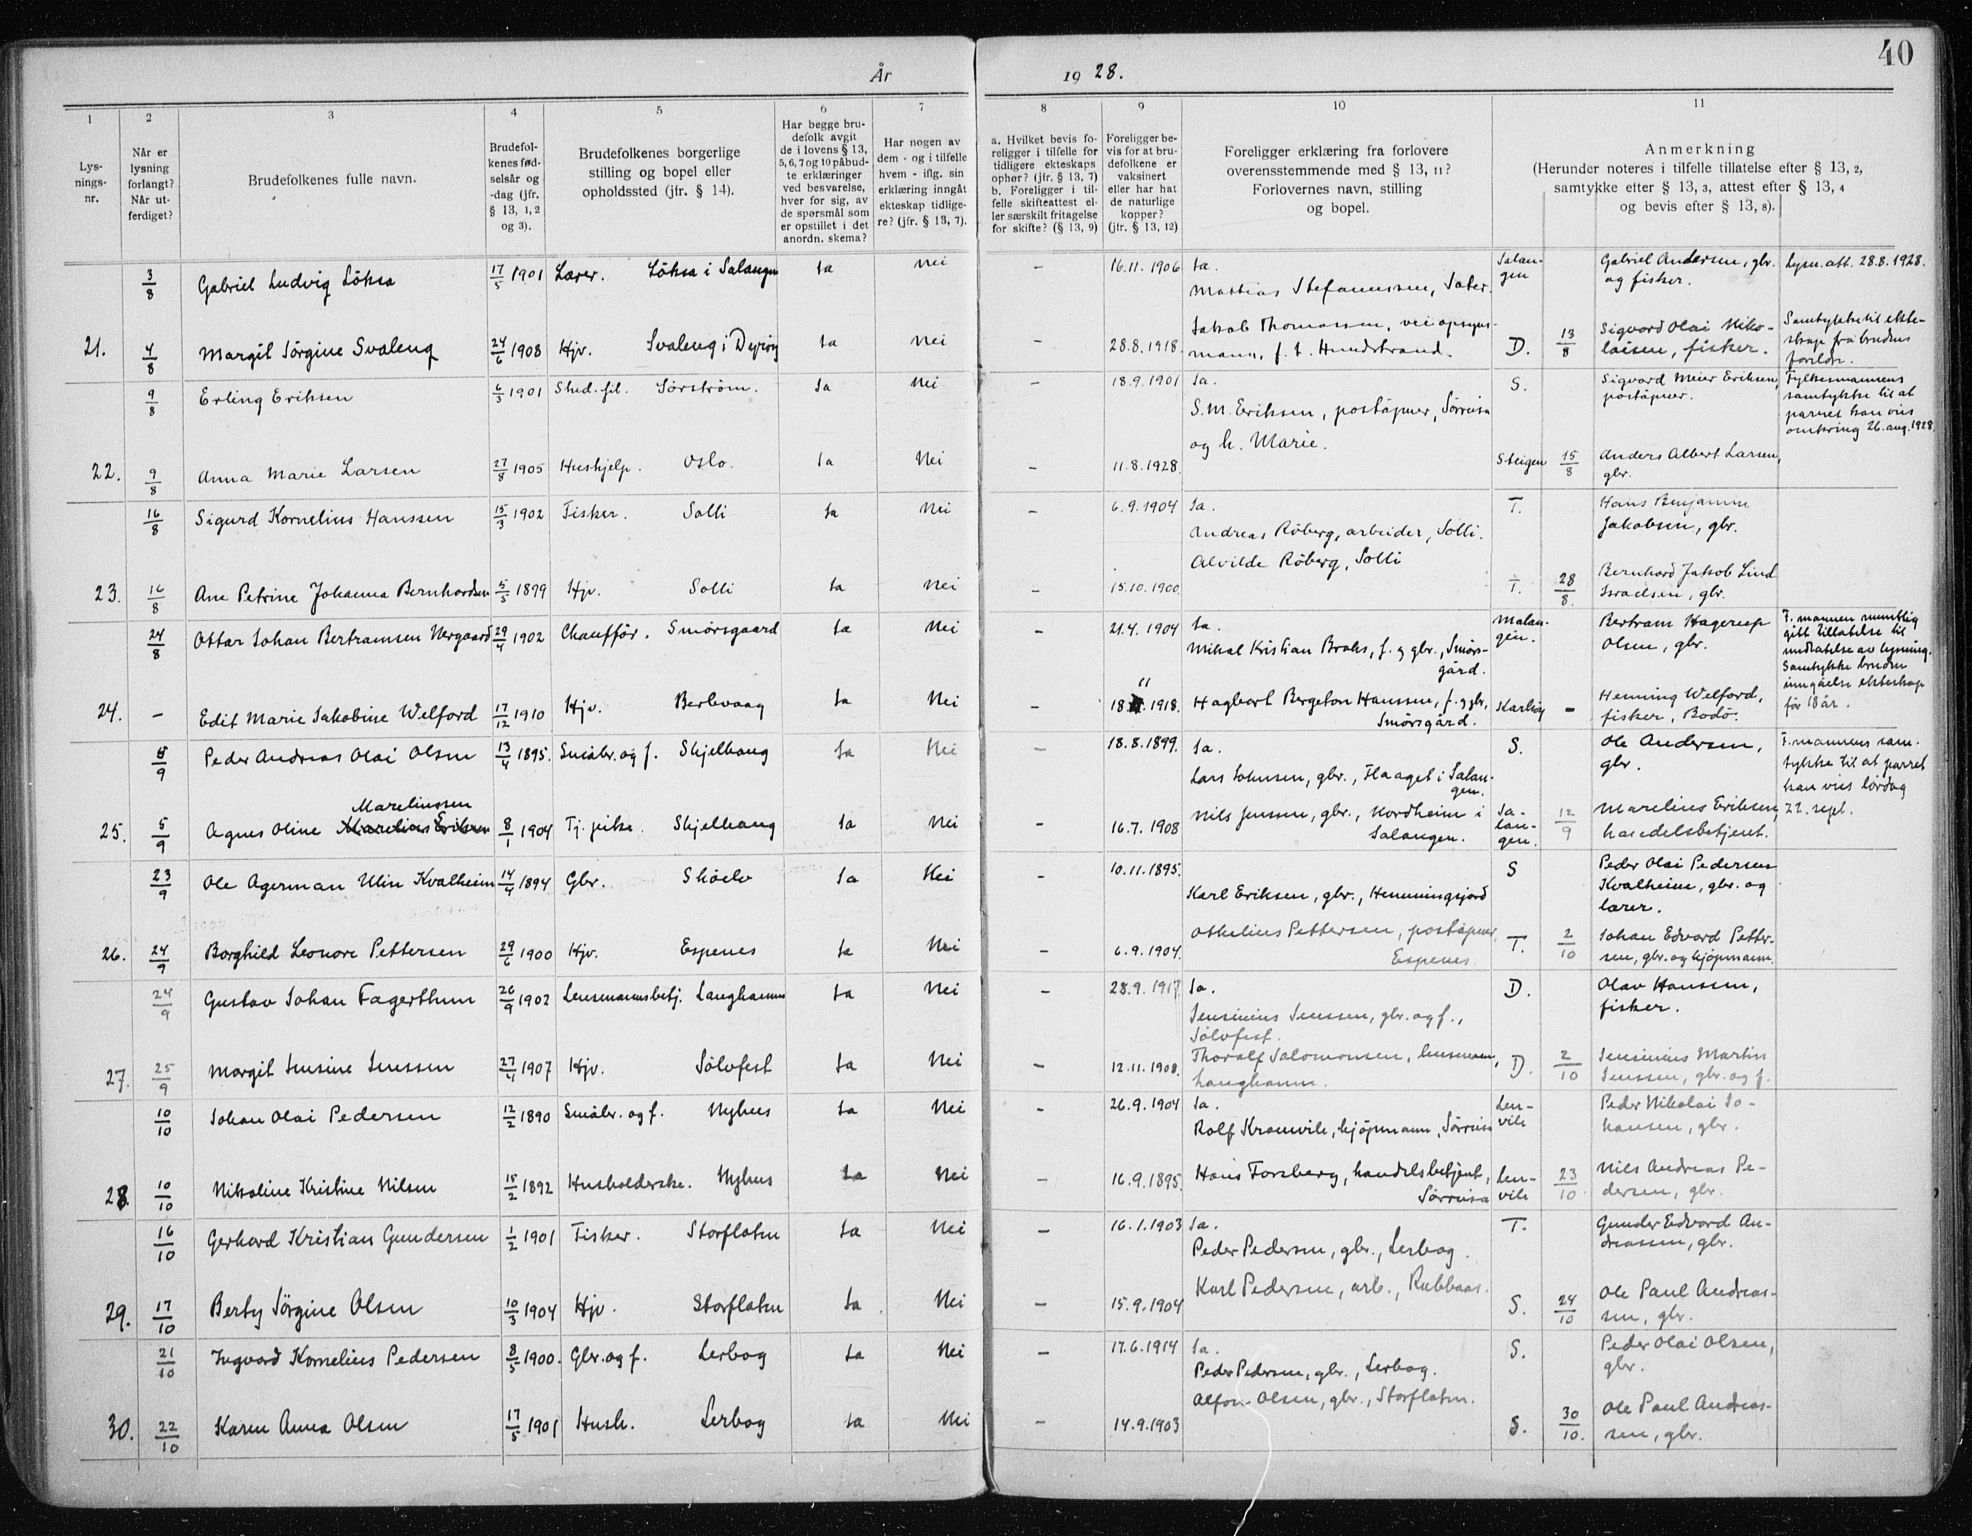 40
År 1928.
1 2 3 4 5 6 7 8 9 10 11
Lys-
nings-
nr.
Når er
lysning
forlangt?
Når ut-
ferdiget?
Brudefolkenes fulle navn.
Brudefol-
kenes fød-
selsår og
-dag (jfr.
§ 13, 1, 2
og 3).
Brudefolkenes borgerlige
stilling og bopel eller
opholdssted (jfr. § 14).
Har begge bru-
defolk avgit
de i lovens § 13,
5, 6, 7 og 10 påbud-
te erklæringer
ved besvarelse,
hver for sig, av
de spørsmål som
er opstillet i det
anordn. skema?
Har nogen av
dem - og i tilfelle
hvem - iflg. sin
erklæring inngåt
ekteskap tidlige-
re? (jfr. § 13, 7).
a. Hvilket bevis fo-
religger i tilfelle for
tidligere ekteskaps
ophør? (jfr. § 13, 7)
b. Foreligger i til-
felle skifteattest el-
ler særskilt fritagelse
for skifte? (§ 13, 9)
Foreligger be-
vis for at bru-
defolkene er
vaksinert
eller har hat
de naturlige
kopper?
(jfr. § 13, 12)
Foreligger erklæring fra forlovere
overensstemmende med § 13, 11?
Forlovernes navn, stilling
og bopel.
Anmerkning
(Herunder noteres i tilfelle tillatelse efter § 13, 2,
samtykke efter § 13, 3, attest efter § 13, 4
og bevis efter § 13, 8).
3/8 Gabriel Ludvig Löksa 17/5 1901 Lærer. Löksa i Salangen Ja Nei – 16.11.1906 Ja.
Mathias Stefanussen, Sæter.
Salan-
gen
Gabriel Andersen, gbr.
og fisker.
Lysn.att. 28.8.1928.
21. 4/8 Margit Jörgine Svaleng 24/6 1908 Hjv. Svaleng i Dyröy Ja Nei – 28.8.1918.
Jakob Thomassen, veiopsyns-
mann, f. t. Hundstrand.
D. 13/8
Sigvard Olai Niko-
laisen, fisker.
Samtykke til ekte-
skap fra brudens
foreldre.
9/8 Erling Eriksen 6/3 1901 Stud. fil. Sörström. Ja Nei – 18.9.1901 Ja.
S.M. Eriksen, poståpner, Sörreisa
og h. Marie.
S.
Sigvard Meier Eriksen,
poståpner.
Fylkesmannens
samtykke til at
parret kan vies
omkring 26. aug. 1928.
22. 9/8 Anna Marie Larsen 27/8 1905 Hushjelp. Oslo. Ja Nei – 11.8.1928. Steigen 15/8
Anders Albert Larsen,
gbr.
16/8 Sigurd Kornelius Hanssen 15/3 1902 Fisker. Solli Ja Nei – 6.9.1904 Ja.
Andreas Röberg, arbeider, Solli.
Alvilde Röberg, Solli
T.
Hans Benjamin
Jakobsen, gbr.
23. 16/8 Ane Petrine Johanna Bernhardsen 5/5 1899 Hjv. Solli Ja Nei – 15.10.1900. T. 28/8.
Bernhard Jakob Lind
Israelsen, gbr.
24/8 Ottar Johan Bertramsen Nergaard 29/4 1902 Chaufför. Smörsgaard Ja Nei – 21.4.1904 Ja.
Mikal Kristian Broks, f. og gbr., Smörs-
gård.
Malan-
gen.
Bertram Hagerup
Olsen, gbr.
F. mannen muntlig
gitt tillatelse til
undlatelse av lysning.
Samtykke bruden
inngåelse ekteskap
för 18 år.
24. – Edit Marie Jakobine Welford 17/12 1910 Hjv. Berlevaag Ja Nei – 18.11.1918.
Hagbart Bergeton Hanssen, f. og gbr,
Smörsgård.
Karlsöy –
Henning Welford,
fisker, Bodö.
5/9 Peder Andreas Olai Olsen 13/4 1895. Småbr. og f. Skjelhaug Ja Nei – 18.8.1899. Ja.
Lars Johnsen, gbr., Haaget i Salan-
gen.
S.
Ole Andersen,
gbr.
F. mannens sam-
tykke til at parret
kan vies lördag
22. sept.
Mareliussen
25. 5/9 Agnes Oline Marelius Eriksen 8/1 1904 Tj. pike. Skjelhaug Ja Nei – 16.7.1908
Nils Jensen, gbr., Nordheim i
Salangen.
Sa-
lan-
gen.
12/9
Marelius Eriksen,
handelsbetjent.
23/9 Ole Agerman Ulin Kvalheim 14/4 1894 Gbr. Sköelv Ja Nei – 10.11.1895.
Karl Eriksen, gbr., Hemmingsjord
S
Peder Olai Pedersen
Kvalheim, gbr. og
lærer.
26. 24/9 Borghild Leonore Pettersen 29/6 1900 Hjv. Espenes Ja Nei – 6.9.1904.
Othelius Pettersen, poståpner,
Espenes
T. 2/10
Johan Edvard Petter-
sen, gbr. og kjöpmann.
24/9 Gustav Johan Fagertun 26/9 1902 Lensmannsbetj. Langhamn Ja Nei – 28.9.1917. Ja.
Jensinius Jenssen, gbr. og f.,
Sölvfest.
D.
Olav Hanssen,
fisker.
27. 25/9 Margit Jensine Jenssen 27/4 1907 Hjv. Sölvfest Ja Nei – 12.11.1908.
Thoralf Salomonsen, lensmann,
Langhamn.
D. 2/10
Jensinius Martin
Jenssen, gbr. og f.
10/10 Johan Olai Pedersen 12/2 1890 Småbr. og f. Nyhus Ja Nei – 26.9.1904 Ja.
Rolf Kramvik, kjöpmann, Sörreisa
Len-
vik
Peder Nikolai Jo-
hansen, gbr.
28. 10/10 Nikoline Kristine Nilsen 15/2 1892 Husholderske. Nyhus Ja Nei – 16.9.1895.
Hans Forsberg, handelsbetjent,
Sörreisa
Len-
vik
23/10.
Nils Andreas Pe-
dersen, gbr.
16/10 Gerhard Kristian Gundersen 1/2 1901 Fisker. Storflaten Ja Nei – 16.1.1903 Ja.
Peder Pedersen, gbr., Lerbog.
T.
Gunder Edvard An-
dreassen, gbr.
29. 17/10 Berty Jörgine Olsen 10/3 1904 Hjv. Storflaten Ja. Nei – 15.9.1904
Karl Pedersen, arb., Rubbaas.
S. 24/10
Ole Paul Andreas-
sen, gbr.
21/10 Ingvard Kornelius Pedersen 8/5 1900. Gbr. og f. Lerbog Ja Nei – 17.6.1914 Ja.
Peder Pedersen, gbr., Lerbog.
S.
Peder Olai Olsen,
gbr.
30. 22/10 Karen Anna Olsen 17/5 1901 Hush. Lerbog Ja Nei – 14.9.1903
Alfon Olsen, gbr., Storflaten.
S. 30/10.
Ole Paul Andreas-
sen, gbr.